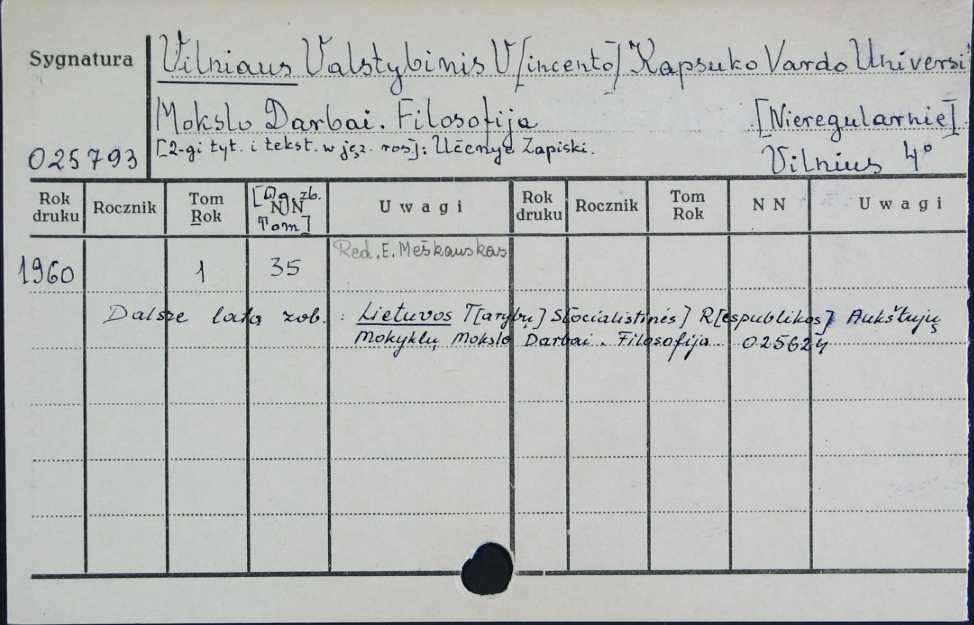 Sygnatura
025793
Vilniaus Valstybinis V[incento] Kapsuko Vardo Universi
Mokslo Darbai. Filosofija [Nieregularnie]
[2-gi tyt. i tekst. w jęz. ros]: Učenye Zapiski.
Vilnius 4°
Rok druku Rocznik Tom Rok [Og. zb. NN Tom] Uwagi Rok druku Rocznik Tom Rok NN Uwagi
1960 1 35 Red. E. Meškauskas
Dalsze lata zob. : Lietuvos T[arybų] S[ocialistinės] R[espublikos] Aukštųjų
Mokyklų Mokslo Darbai. Filosofija 025624